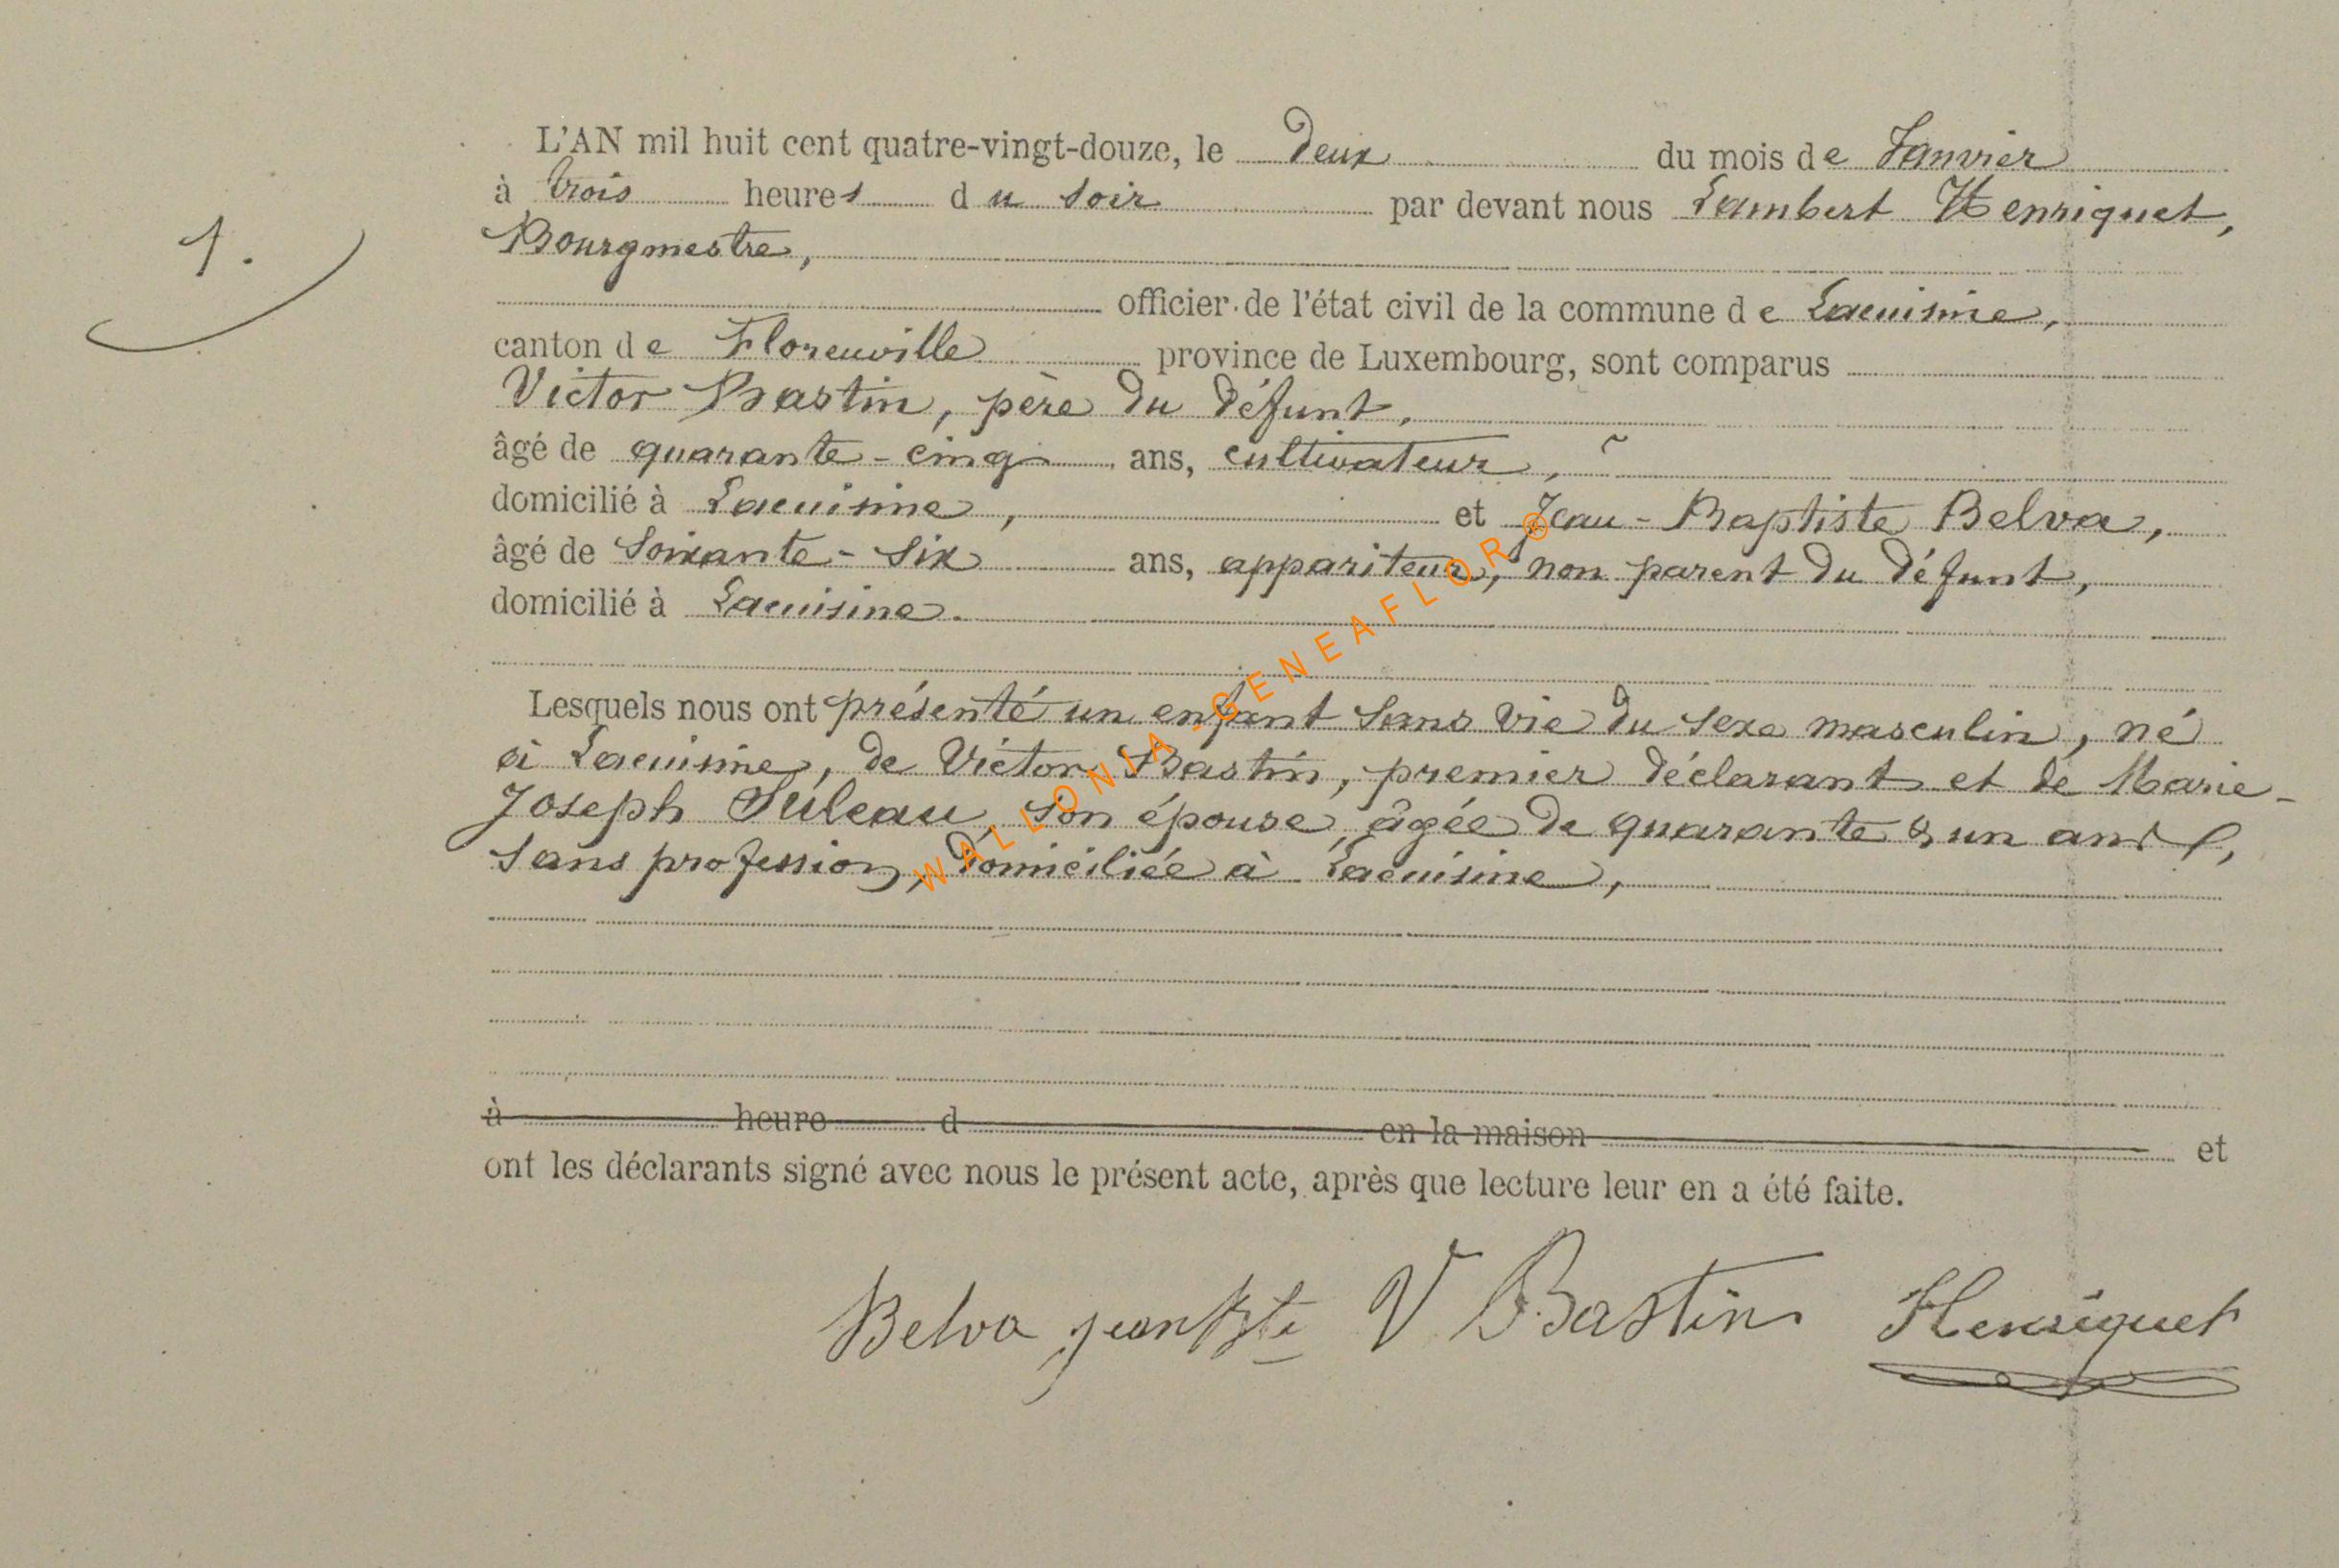 1.
L'AN mil huit cent quatre-vingt-douze, le deux du mois de Janvier
à trois heures du soir par devant nous Lambert Henriquet,
Bourgmestre,
officier de l'état civil de la commune de Lacuisine,
canton de Florenville province de Luxembourg, sont comparus
Victor Bastin, père du défunt,
âgé de quarante-cinq ans, cultivateur,
domicilié à Lacuisine, et Jean-Baptiste Belva,
âgé de Soixante-six ans, appariteur, non parent du défunt,
domicilié à Lacuisine.
Lesquels nous ont présenté un enfant sans vie du sexe masculin, né
à Lacuisine, de Victor Bastin, premier déclarant et de Marie-
Joseph Suleau son épouse, âgée de quarante & un ans,
sans profession, domiciliée à Lacuisine,
à heure d en la maison et
ont les déclarants signé avec nous le présent acte, après que lecture leur en a été faite.
Belva jean Bte V Bastin Henriquet
WALLONIA-GENEAFLOR®